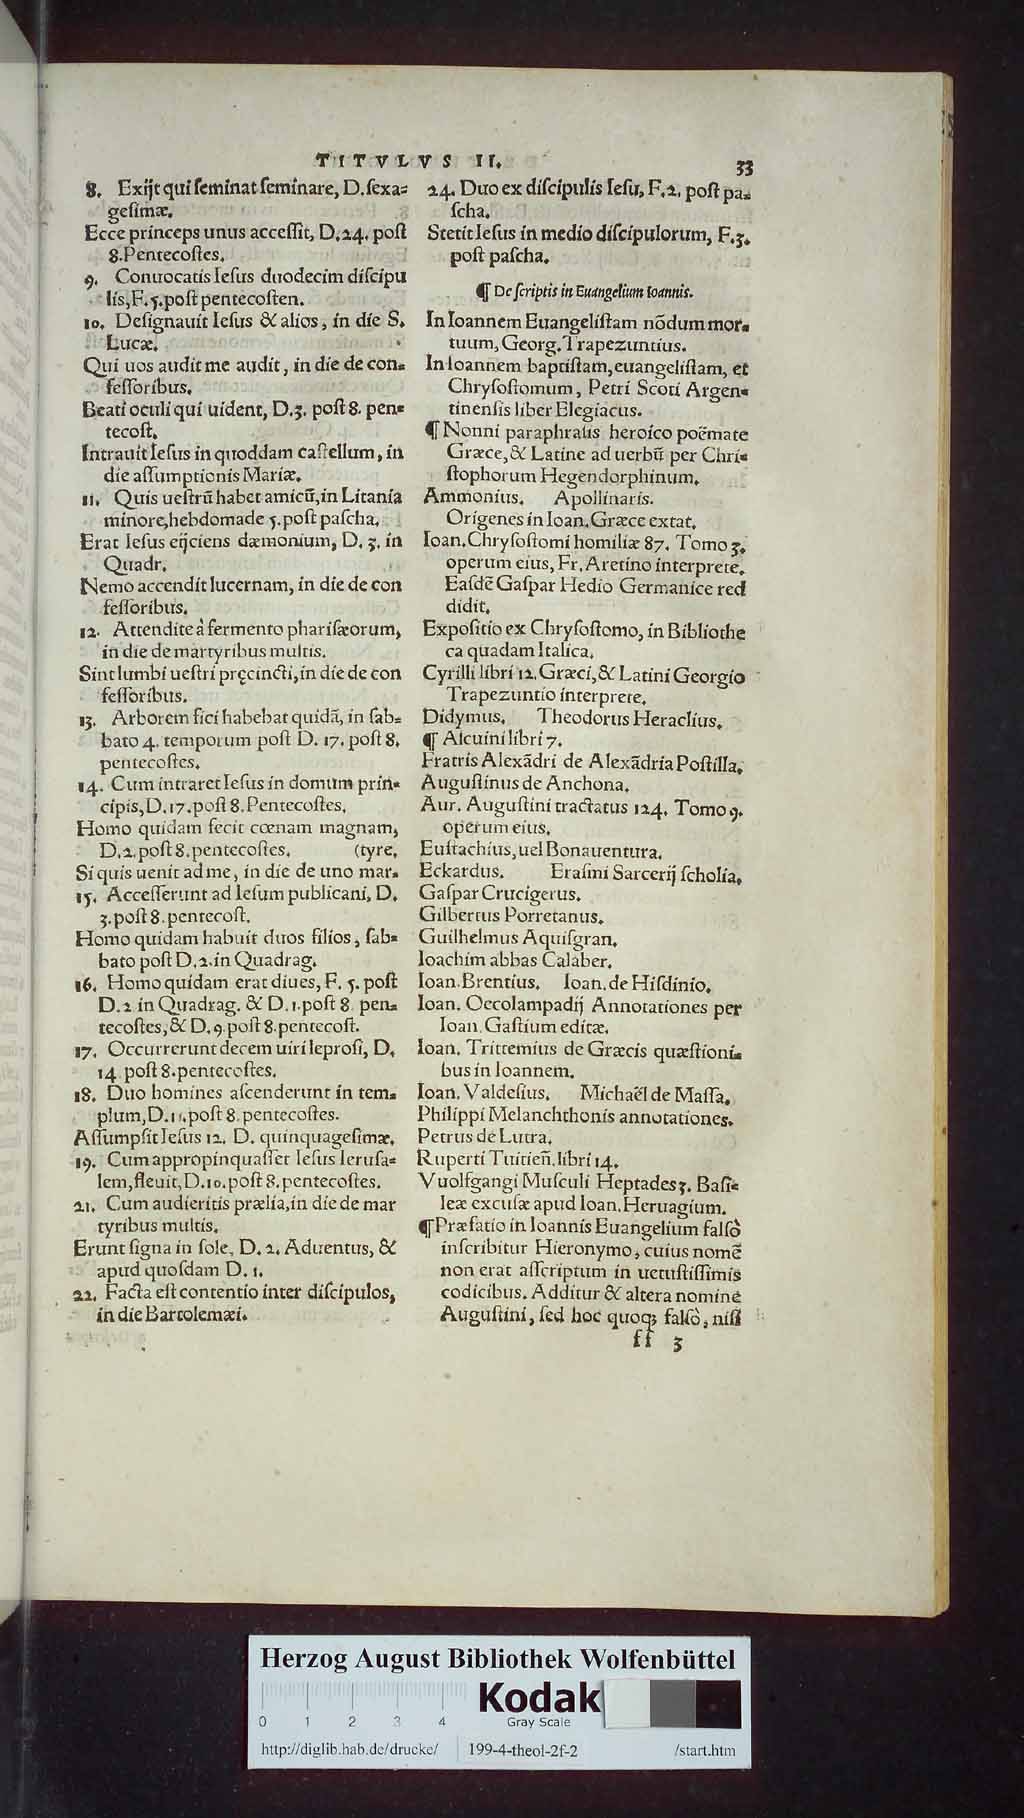 TITVLVS II.
33
8. Exijt qui ſeminat ſeminare, D. ſexa=
geſimæ.
Ecce princeps unus acceſſit, D. 24. poſt
8. Pentecoſtes.
9. Conuocatis Ieſus duodecim diſcipu
lis, F. 5. poſt pentecoſten.
10. Deſignauit Ieſus & alios, in die S.
Lucæ.
Qui uos audit me audit, in die de con=
feſſoribus.
Beati oculi qui uident, D. 3. poſt 8. pen=
tecoſt.
Intrauit Ieſus in quoddam caſtellum, in
die aſſumptionis Mariæ.
11. Quis ueſtrũ habet amicũ, in Litania
minore, hebdomade 5. poſt paſcha.
Erat Ieſus eijciens dæmonium, D. 3. in
Quadr.
Nemo accendit lucernam, in die de con
feſſoribus.
12. Attendite à fermento phariſæorum,
in die de martyribus multis.
Sint lumbi ueſtri pręcincti, in die de con
feſſoribus.
13. Arborem fici habebat quidã, in ſab=
bato 4. temporum poſt D. 17. poſt 8.
pentecoſtes.
14. Cum intraret Ieſus in domum prin=
cipis, D. 17. poſt 8. Pentecoſtes.
Homo quidam fecit cœnam magnam,
D. 2. poſt 8. pentecoſtes. (tyre.
Si quis uenit ad me, in die de uno mar=
15. Acceſſerunt ad Ieſum publicani, D.
3. poſt 8. pentecoſt.
Homo quidam habuit duos filios, ſab=
bato poſt D. 2. in Quadrag.
16. Homo quidam erat diues, F. 5. poſt
D. 2 in Quadrag. & D. 1. poſt 8. pen=
tecoſtes, & D. 9. poſt 8. pentecoſt.
17. Occurrerunt decem uiri leproſi, D.
14 poſt 8. pentecoſtes.
18. Duo homines aſcenderunt in tem=
plum, D. 11. poſt 8. pentecoſtes.
Aſſumpſit Ieſus 12. D. quinquageſimæ.
19. Cum appropinquaſſet Ieſus Ieruſa=
lem, fleuit, D. 10. poſt 8. pentecoſtes.
21. Cum audieritis prælia, in die de mar
tyribus multis.
Erunt ſigna in ſole, D. 2. Aduentus, &
apud quoſdam D. 1.
22. Facta eſt contentio inter diſcipulos,
in die Bartolemæi.
24. Duo ex diſcipulis Ieſu, F. 2. poſt pa=
ſcha.
Stetit Ieſus in medio diſcipulorum, F. 3.
poſt paſcha.
¶ De ſcriptis in Euangelium Ioannis.
In Ioannem Euangeliſtam nõdum mor=
tuum, Georg. Trapezuntius.
In Ioannem baptiſtam, euangeliſtam, et
Chryſoſtomum, Petri Scoti Argen=
tinenſis liber Elegiacus.
¶ Nonni paraphraſis heroico poëmate
Græce, & Latine ad uerbũ per Chri=
ſtophorum Hegendorphinum.
Ammonius. Apollinaris.
Origenes in Ioan. Græce extat.
Ioan. Chryſoſtomi homiliæ 87. Tomo 3.
operum eius, Fr. Aretino interprete.
Eaſdẽ Gaſpar Hedio Germanice red
didit.
Expoſitio ex Chryſoſtomo, in Bibliothe
ca quadam Italica.
Cyrilli libri 12. Græci, & Latini Georgio
Trapezuntio interprete.
Didymus. Theodorus Heraclius.
¶ Alcuini libri 7.
Fratris Alexãdri de Alexãdria Poſtilla.
Auguſtinus de Anchona.
Aur. Auguſtini tractatus 124. Tomo 9.
operum eius.
Euſtachius, uel Bonauentura.
Eckardus. Eraſmi Sarcerij ſcholia.
Gaſpar Crucigerus.
Gilbertus Porretanus.
Guilhelmus Aquiſgran.
Ioachim abbas Calaber.
Ioan. Brentius. Ioan. de Hiſdinio.
Ioan. Oecolampadij Annotationes per
Ioan. Gaſtium editæ.
Ioan. Trittemius de Græcis quæſtioni=
bus in Ioannem.
Ioan. Valdeſius. Michaël de Maſſa.
Philippi Melanchthonis annotationes.
Petrus de Lutra.
Ruperti Tuitieñ. libri 14.
Vuolfgangi Muſculi Heptades 3. Baſi=
leæ excuſæ apud Ioan. Heruagium.
¶ Præfatio in Ioannis Euangelium falſò
inſcribitur Hieronymo, cuius nomẽ
non erat aſſcriptum in uetuſtiſſimis
codicibus. Additur & altera nomine
Auguſtini, ſed hoc quoq; falſò, niſi
ff 3
Herzog August Bibliothek Wolfenbüttel
Kodak
Gray Scale
0 1 2 3 4
http://diglib.hab.de/drucke/ 199-4-theol-2f-2 /start.htm